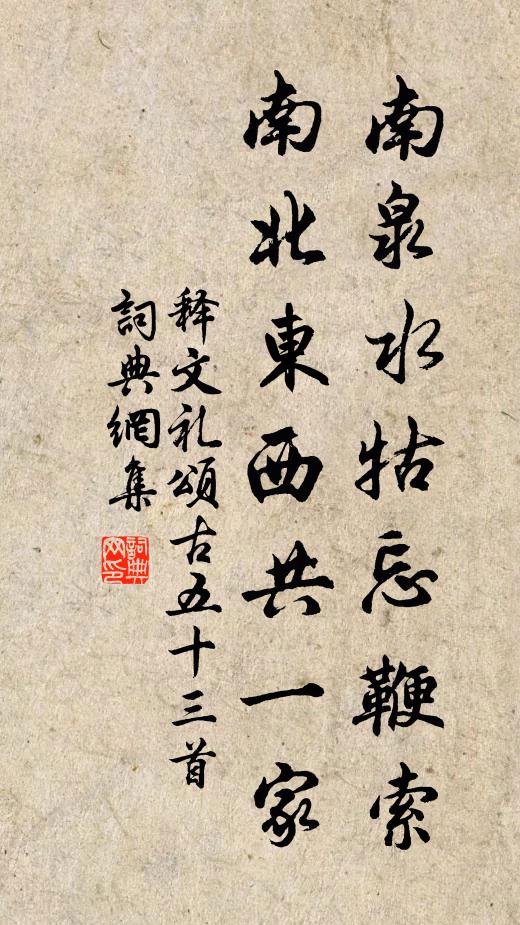 南泉水牯忘鞭索
南北東西共一家
释文礼頌古五十三首
詞典網集
詞典网印